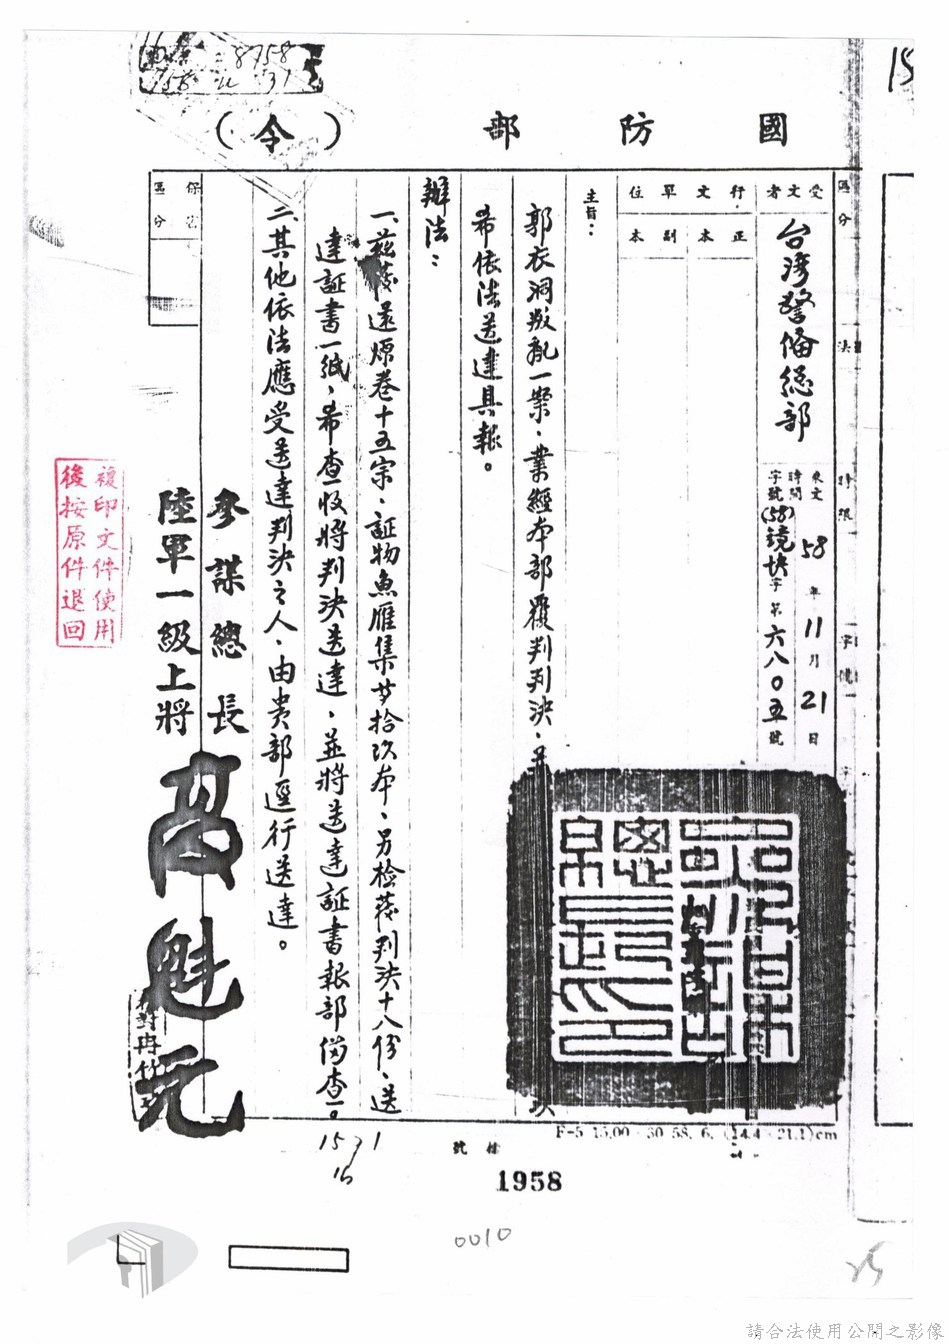 8758
31
15
國防部（令）
區分
保密
區分
受文者
台湾警備総部
行文單位
正本
副本
來文
時間
58年11月21日
字號
(58)鏡抉字第六八〇五號
主旨：
郭衣洞叛乱一案、業經本部覆判判決、
希依法送達具報。
辦法：
一、茲發還原卷十五宗、証物魚雁集廿拾玖本、另檢發判決十八份、送
達証書一紙，希查收將判決送達，並將送達証書報部備查。
二、其他依法應受送達判決之人、由貴部逕行送達。
參謀總長
陸軍一級上將
高魁元
複印文件使用
後按原件退回
F-5 15,00 30 58. 6. (14.4 21.1)cm
檔號
1531
16
1958
0010
25
請合法使用公開之影像